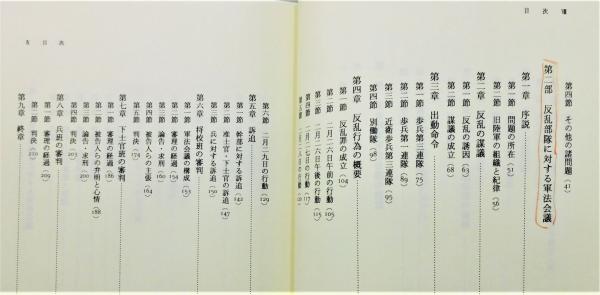 目次 Ⅷ
第四節 その他の諸問題(41)
第二部 反乱部隊に対する軍法会議
第一章 序説
第一節 問題の所在(51)
第二節 旧陸軍の組織と紀律(56)
第二章 反乱の謀議
第一節 反乱の誘因(63)
第二節 謀議の成立(68)
第三章 出動命令
第一節 歩兵第三連隊(75)
第二節 歩兵第一連隊(89)
第三節 近衛歩兵第三連隊(95)
第四節 別働隊(98)
第四章 反乱行為の概要
第一節 反乱罪の成立(104)
第二節 二月二六日午前の行動(105)
第三節 二月二六日午後の行動(115)
第四節 二月二七日の行動(117)
第六節 二月二九日の行動(129)
第五章 訴追
第一節 幹部に対する訴追(142)
第二節 准士官・下士官の訴追(147)
第三節 兵に対する訴追(150)
第六章 将校班の審判
第一節 軍法会議の構成(153)
第二節 審理の経過(154)
第三節 論告・求刑(160)
第四節 被告人らの主張(164)
第五節 判決(174)
第七章 下士官班の審判
第一節 審理の経過(186)
第二節 被告人らの弁明と心情(188)
第三節 論告・求刑(200)
第四節 判決(203)
第八章 兵班の審判
第一節 審理の経過(209)
第二節 判決(220)
第九章 終章
目次